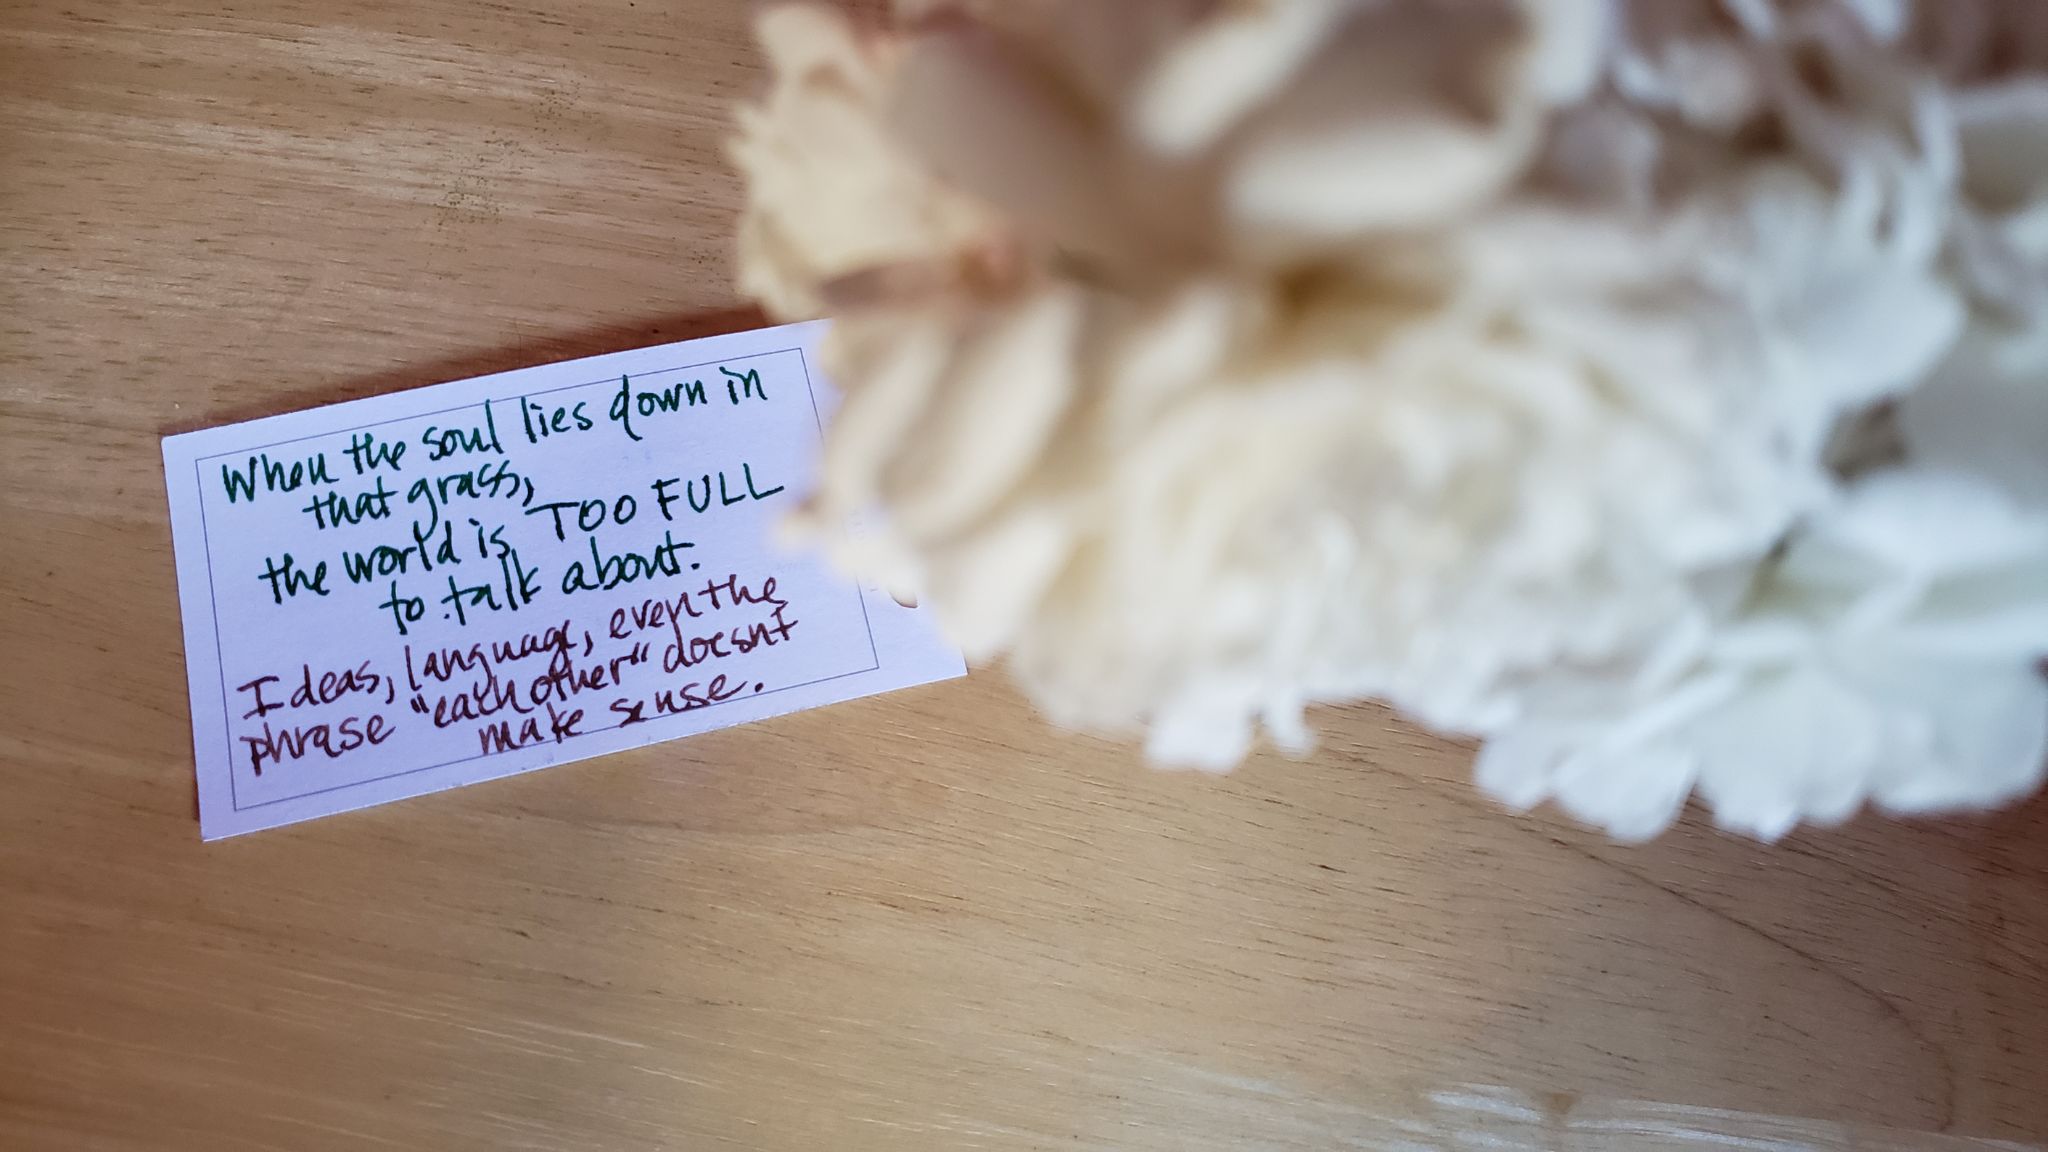 When the soul lies down in
that grass,
the world is TOO FULL
to talk about.
Ideas, language, even the
phrase "each other" doesn't
make sense.